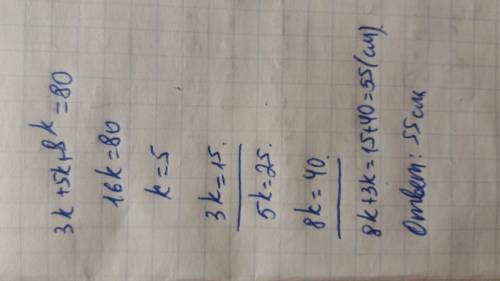 3k+5k+8k=80
16k=80
k=5
3k=15.
5k=25.
8k=40.
8k+3k=15+40=55(см)
Ответ: 55см